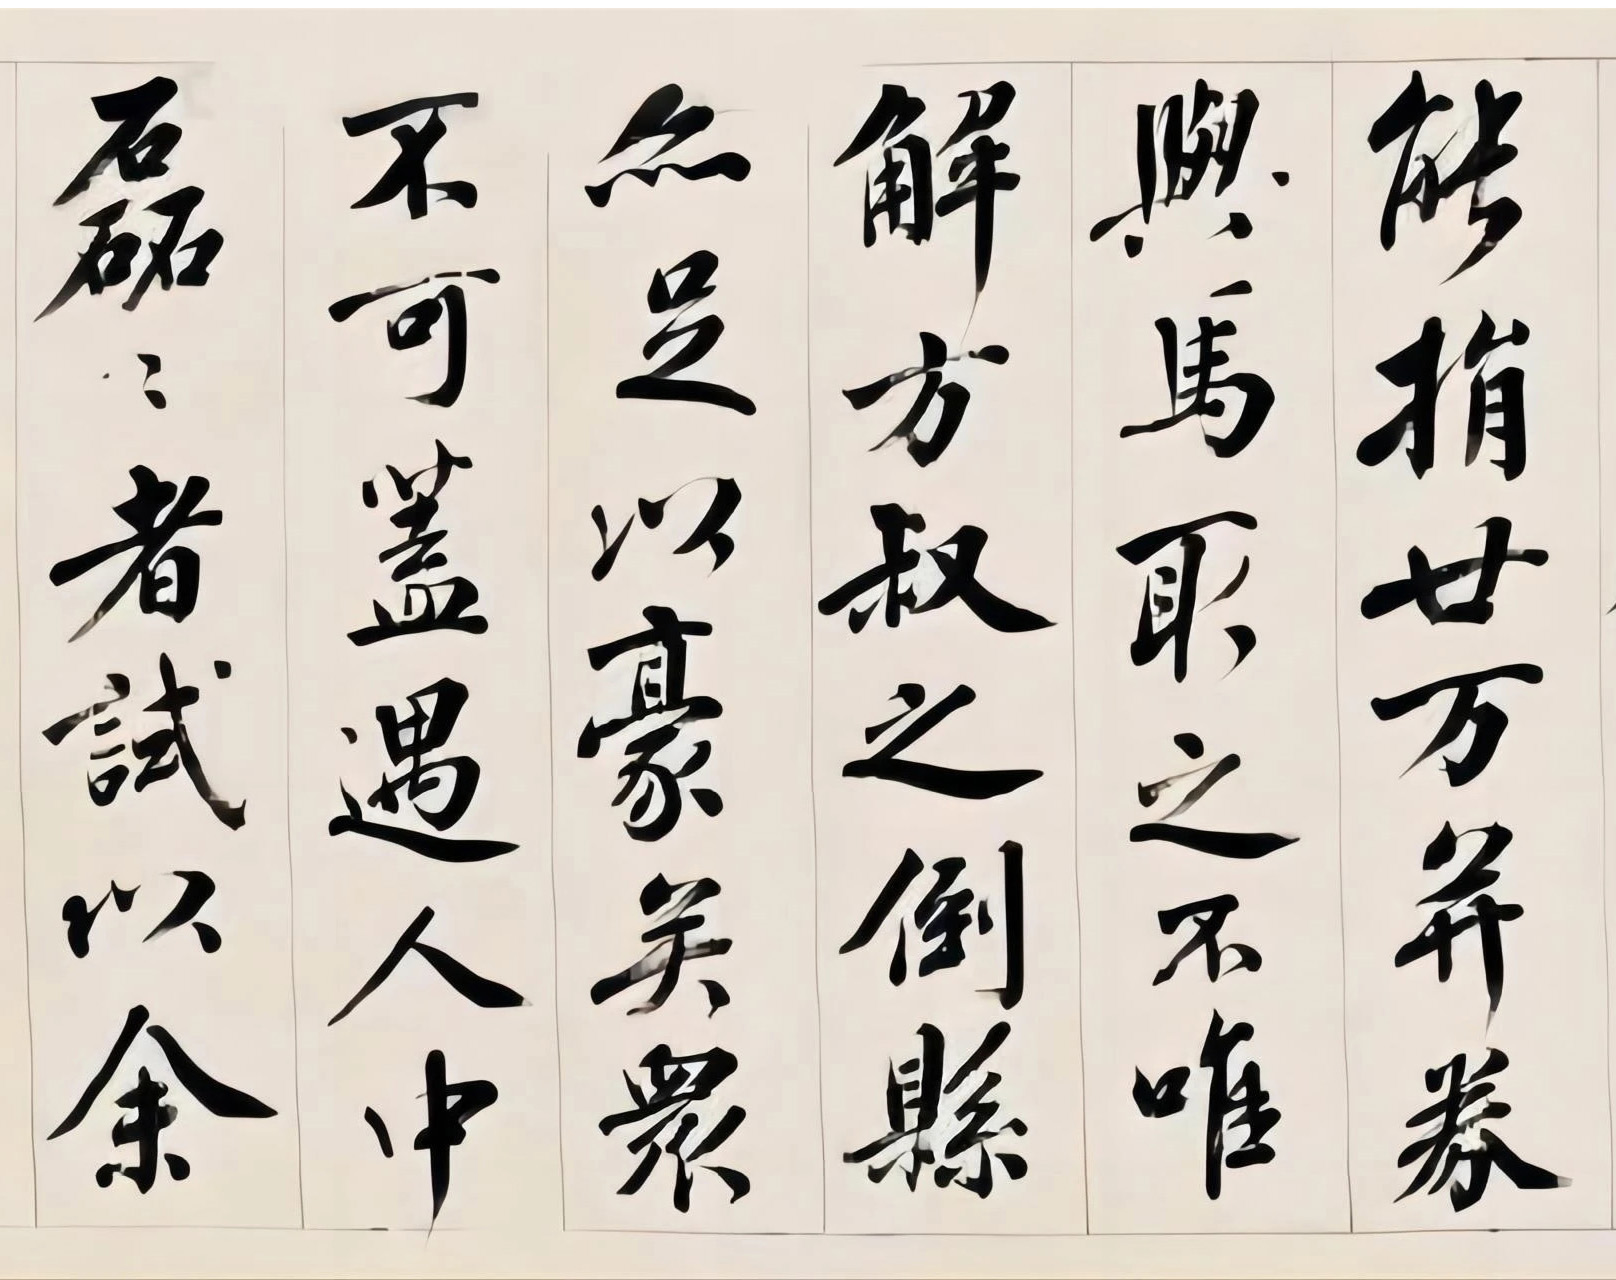 能捐廿万并券
與馬取之不唯
解方叔之倒縣
亦足以豪矣衆
不可蓋遇人中
磊々者試以余